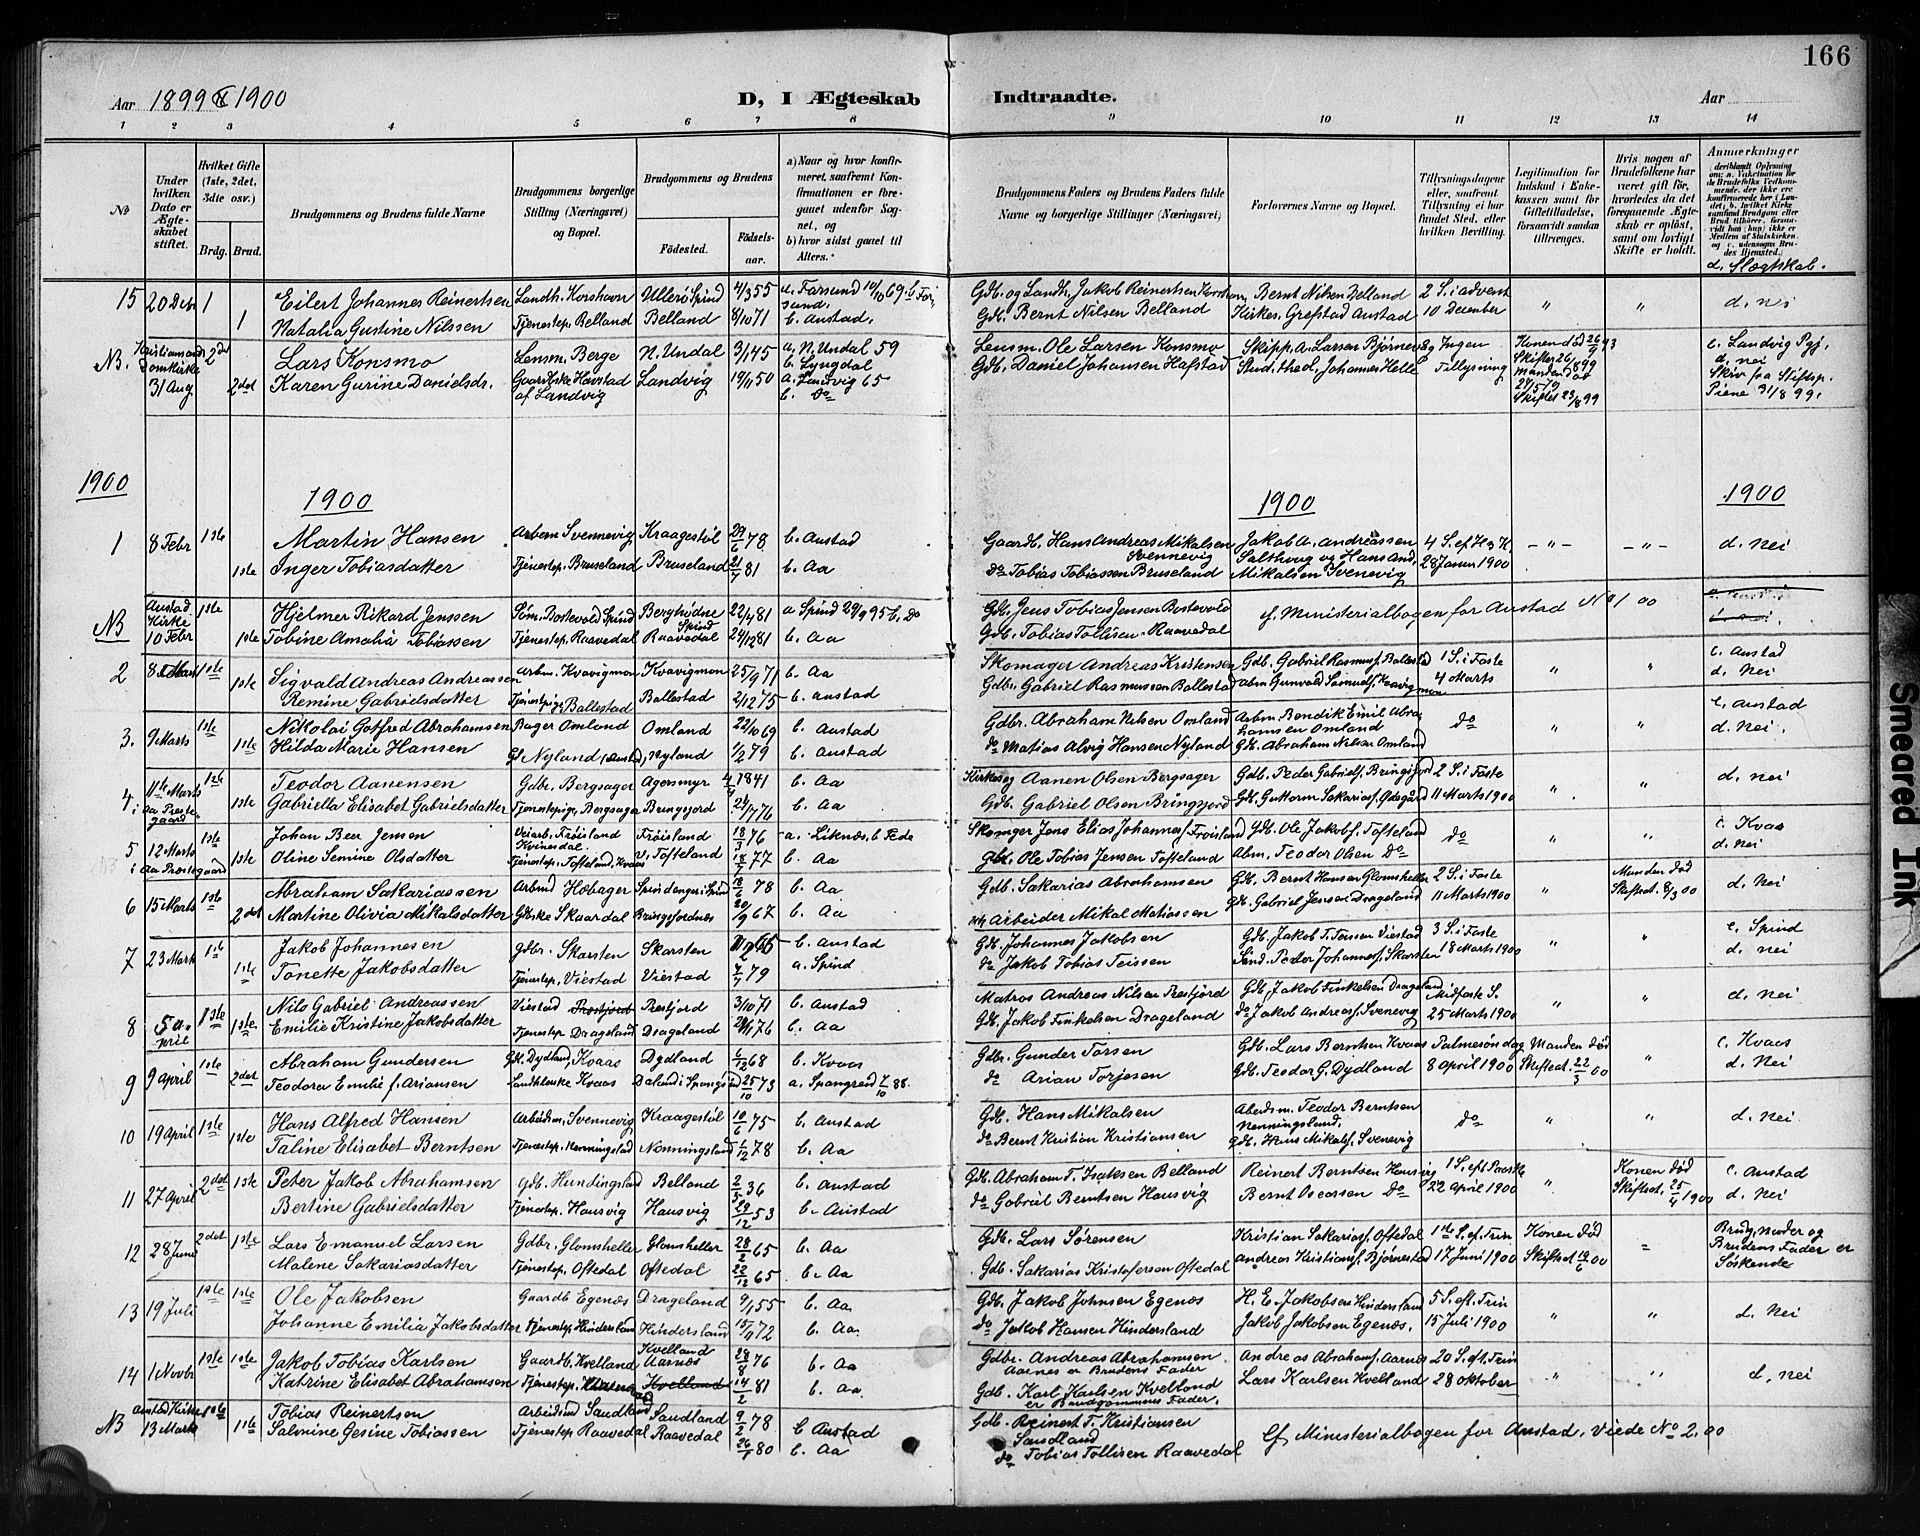 166
Aar 1899 & 1900
D, I Ægteskab Indtraadte.
Aar
1 2 3 4 5 6 7 8 9 10 11 12 13 14
No
Under hvilken Dato er Ægteskabet stiftet.
Hvilket Gifte (1ste, 2det, 3die osv.)
Brdg. Brud.
Brudgommens og Brudens fulde Navne
Brudgommens borgerlige Stilling (Næringsvei) og Bopæl.
Brudgommens og Brudens
Födested.
Födselsaar.
a) Naar og hvor konfirmeret, saafremt Konfirmationen er foregaaet udenfor Sognet, og
b) hvor sidst gaaet til Alters.
Brudgommens Faders og Brudens Faders fulde Navne og borgerlige Stillinger (Næringsvei)
Forlovernes Navne og Bopæl.
Tillysningsdagene eller, saafremt Tillysning ei har fundet Sted, efter hvilken Bevilling.
Legitimation for Indskud i Enkekassen samt for Giftetilladelse, forsaavidt saadan tiltrænges.
Hvis nogen af Brudefolkene har været gift för, hvorledes da det foregaaende Ægteskab er oplöst, samt om lovligt Skifte er holdt.
Anmærkninger
d. Slægtskab.
15 20 Debr 1 Eilert Johannes Reinertsen Landh. Korshavn Ullerø Spind 4/3 55 a. Farsund 10/10 69 b. Farsund. Gdb. og Landh. Jakob Reinertsen Korshavn Bernt Nilsen Belland 2 S. i advent " " d. nei
1 Natalia Gustine Nilssen Tjenestep. Belland Belland 8/10 71 b. Austad. Gdb. Bernt Nilsen Belland Kirkes. Grefstad Austad 10 December
NB. Kristiansands Domkirke 31 Aug 2det Lars Konsmo Lensm. Berge N. Undal 3/1 45 a. N. Undal 59 b. Lyngdal Lensm. Ole Larsen Konsmo Skipp. A. Larsen Bjørnevåg Ingen Konen død 26/9 93 Skiftet 26/1 899 c. Landvig Pgj.
2det Karen Gurine Danielsdr. Gaardbske Havstad af Landvig Landvig 19/11 50 a. Landvig 65 b. Do Gdb. Daniel Johansen Hafstad Stud. theol. Johannes Helle Tillysning Manden død Skiftet 23/8 99 d. nei Skriv fra Stiftsp. Piene 31/8 99.
1900 1900 1900 1900
1 8 Febr 1ste Martin Hansen Arbem Svennevig Kraagestøl 29/6 78 b. Austad Gaardb. Hans Andreas Mikalsen Svennevig Jakob A. Andreassen 4 S. ef H 3 K. -"- -"- d. Nei
1ste Inger Tobiasdatter Tjenestep. Bruseland Bruseland 21/7 81 b. Aa do Tobias Tobiassen Bruseland Salthaug og Hans And. Mikalsen Svenevig 28 Januar 1900
NB Austad Kirke 10 Febr 1ste Hjelmer Rikard Jenssen Søm. Bostevold Spind Berghødne Spind 22/4 81 a Spind 29/9 95 b. Do Gdb. Jens Tobias Jensen Bostevold cf. Ministerialbogen for Austad No 1 00
1ste Tobine Amalia Tobiassen Tjenestep. Raavedal Raavedal 24/12 81 b. Aa Gdb. Tobias Tollisen Raavedal
2 8 Marts 1ste Sigvald Andreas Andreassen Arbm. Kvavigmon Kvavigmon 25/9 71 b. Aa Skomager Andreas Kristensen Gdb. Gabriel Rasmus. Ballestad 1 S. i Faste " " c. Austad
1ste Remine Gabrielsdatter Tjenestepige Ballestad Ballestad 2/12 75 b. Austad Gdbr. Gabriel Rasmussen Ballestad Abm Gunvald Samuels. Kvavigmon 4 Marts d. Nei
3. 9 Marts 1ste Nikolai Gotfred Abrahamsen Bager Omland Omland 22/10 69 b. Austad Gdbr. Abraham Nilsen Omland Arbm. Bendik Emil Abrahamsen Omland do " " c. Austad
1ste Hilda Marie Hansen Nyland (Austad) Nyland 1/2 79 b. Austad do Matias Alvig Hansen Nyland Gdb. Abraham Nilsen Omland d. Nei.
4 11te Marts i Aa Prestegaard 1ste Teodor Aanensen Gdbr. Bergsager Agersmyr 1841 b. Aa Kirkesog Aanen Olsen Bergsager Gdb. Peder Gabriels. Bringsjord 2 S. i Faste " " d. nei
1ste Gabriella Elisabet Gabrielsdatter Tjenestepige Bergsager Bringsjord 24/7 76 b. Aa Gdb. Gabriel Olsen Bringsjord Gdb. Guttorm Sakarias. Ødegård 11 Marts 1900
5 12 Marts i Aa Prestegaard 1ste Johan Beer Jensen Veiarb. Frøisland Kvinesdal Frøisland 18/3 76 a. Liknæs, b Fede Skomger Jens Elias Johannes. Frøisland Gdb. Ole Jakobs. Tofteland do " " c. Kvaas
1ste Oline Semine Olsdatter Tjenestep. Tofteland, Kvaas V. Tofteland 18/7 77 b. Aa Gbr. Ole Tobias Jensen Tofteland Abm. Teodor Olsen Do d. nei
6 15 Marts 1ste Abraham Sakariassen Arbmd Hæbager Spindsanger i Spind 18/6 78 b. Aa Gdb. Sakarias Abrahamsen Gdb. Bernt Hansen Glomsheller 2 S. i Faste " Manden død d. Nei
2det Martine Olivia Mikalsdatter Gdbske Skaardal Bringsjordnes 20/9 67 b. Aa Arbeider Mikal Matiassen Gdb. Gabriel Jensen Drageland 11 Marts 1900 Skiftet. 8/3 00
7 23 Marts 1ste Jakob Johannesen Gdbr. Skarsten Skarsten 65 b. Austad Gdb. Johannes Jakobsen Gdb. Jakob T. Tenssen Viestad 3 S. i Faste " " c. Spind
1ste Tonette Jakobsdatter Tjenestep. Viestad Viestad 7/7 79 a. Spind do Jakob Tobias Teissen Sønd. Peder Johannes. Skarsten 18 Marts 1900 d. nei
8 5 April 1ste Nils Gabriel Andreassen Viestad Prestjord Prestjord 3/10 71 b. Austad Matros Andreas Nilsen Prestjord Gdb. Jakob Finkelsen Drageland Midfaste S. " " d. Nei
1ste Emilie Kristine Jakobsdatter Tjenestep Drageland Drageland 76 b. Aa Gdb. Jakob Finkelsen Drageland do Jakob Andreas. Svenevig 25 Marts 1900
9 9 April 1ste Abraham Gundersen Gdb. Dydland, Kvaas Dydland 6/12 68 b. Kvaas Gdbr. Gunder Torsen Gdb. Lars Berntsen Kvaas Palmesøndag Manden død " c. Kvaas
2det Teodora Emilie f. Ariansen Landblenke Kvaas Daland i Spangereid 25/10 73 a. Spangreid 7/10 88. do Arian Torjesen Gdb. Teodor G. Dydland 8 April 1900 Skiftet. 22/3 00 d. Nei
10 19 April 1ste Hans Alfred Hansen Arbeidsm. Svennevig Kraagestøl 10/6 75 b. Austad Gdb. Hans Mikalsen Aberdsm. Teodor Berntsen Nenningsland. do " " d. nei
1ste Taline Elisabet Berntsen Tjenestep. Nenningstad Nenningsland 1/12 78 b. Aa do Bernt Kristian Kristiansen Gdb. Hans Mikals. Svenevig
11 27 April 2det 1ste Peter Jakob Abrahamsen Gdb. Hundingsland Belland 2/5 36 b. Austad Gdb. Abraham T. Isaksen Belland Reinert Berntsen Hausvig 1 S. eft Paaske " Konen død c. Austad
Bertine Gabrielsdatter Tjenestep. Hausvig Hausvig 29/12 53 b. Austad do Gabriel Berntsen Hausvig Bernt Oseassen Do 22 April 1900 Skiftet. 25/4 1900 d. Nei
12 28 Juni 2det 1ste Lars Emanuel Larsen Gdbr. Glomsheller Glomsheller 28/2 65 b. Aa Gdb. Lars Sørensen Kristian Sakarias. Oftedal 1ste S. ef. Trin Konen død " Brudg. Moder og
Malene Sakariasdatter Tjenestep. Oftedal Oftedal 22/12 65 b. Aa Gdb. Sakarias Kristofersen Oftedal Andreas Kristians. Bjørnestad 17 Juni 1900 Skiftet 19/6 00 Brudens Fader er Søskende
13 19 Juli 1ste 1ste Ole Jakobsen Gaardb Egenæs Drageland 9/1 55 b. Aa Gdb. Jakob Johnsen Egenæs H. E. Jakobsen Hindersland 5 S. eft. Trin " " d. Nei
Johanne Emilia Jakobsdatter Tjenestep. Hindersland Hindersland 15/11 72 b. Aa. do Jakob Hansen Hindersland Jakob Jakobsen Egenæs. 15 Juli 1900
14 1 Novbr 1ste 1ste Jakob Tobias Karlsen Gaardb. Kvelland Kvelland Aarnes 28/8 76 b. Aa Gdbr. Andreas Abrahamsen Aarnes er Brudens Fader Andreas Abrahams. Aarnes 20 S. eft. Trin " " d. nei
Katrine Elisabet Abrahamsen Tjenestep. Kvelland 14/2 81 b. Aa Gdb. Karl Karlsen Kvelland er Brudgommens Fader. Lars Karlsen Kvelland 28 Oktober
NB Austad Kirke 13 Marts 1ste Tobias Reinertsen Arbeidsmd Sandland Sandland 9/2 78 b Austad Gdb. Reinert T. Kristiansen Sandland Cf Ministerialbogen for Austad, Viede No 2. 00
1ste Salmine Gesine Tobiassen Tjenestep Raavedal Raavedal 26/1 80 b. Aa do Tobias Tollisen Raavedal
Smeared Ink